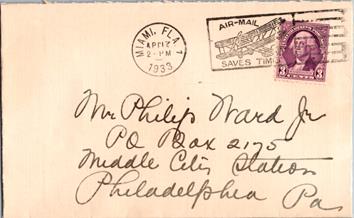 MIAMI, FLA. 1
APR 17
2 - PM
1933
AIR-MAIL
SAVES TIME
3 3
CENTS
Mr Philip Ward Jr
PO Box 2175
Middle City Station
Philadelphia Pa